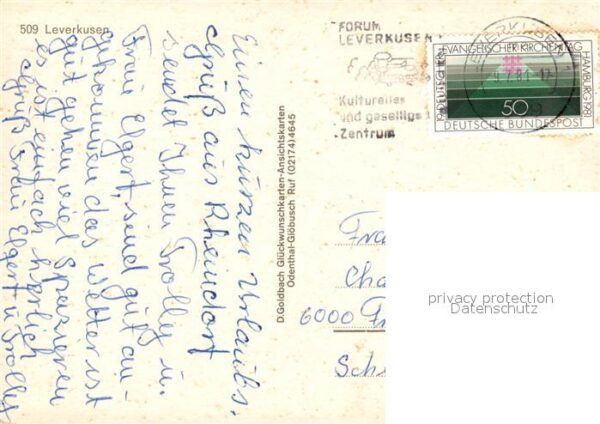 509 Leverkusen
Einen kurzen Urlaubs-
gruß aus Rheindorf
sendet Ihnen Trolly u.
Frau Elgert, sind gut an-
gekommen das Wetter ist
gut gehen viel Spazieren
es ist einfach herrlich
Gruß Frau Elgert u. Trolly
D.Goldbach Glückwunschkarten-Ansichtskarten
Odenthal-Glöbusch Ruf (02174) 4645
FORUM
LEVERKUSEN
Kulturelles
und geselliges
Zentrum
LEVERKUSEN
19. DEUTSCHER EVANGELISCHER KIRCHENTAG HAMBURG 1981
50
DEUTSCHE BUNDESPOST
Fra
Cha
6000 Fr
Sch
privacy protection
Datenschutz